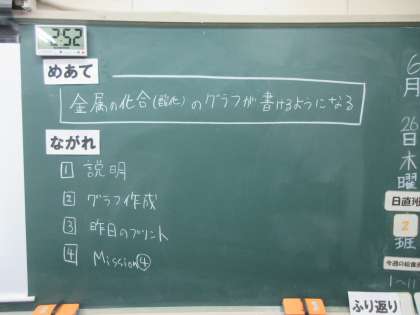 2:52
めあて
金属の化合(酸化)のグラフが書けるようになる
ながれ
1 説明
2 グラフ作成
3 昨日のプリント
4 Mission④
6月
26日
木曜
日直班
2
班
今週の給食班
1〜11
ふり返り